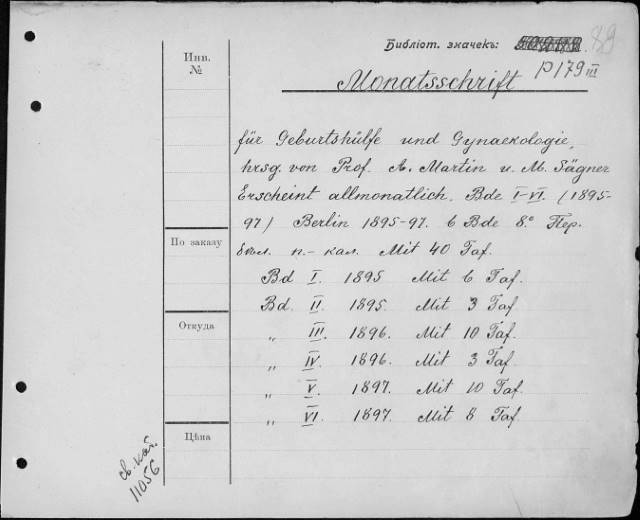 Библіот. значекъ:
89
Инв.
№
Monatsschrift P179 III
für Geburtshülfe und Gynaekologie,
hrsg. von Prof. A. Martin u. M. Sägner
Erscheint allmonatlich. Bde I-VI. (1895-
97) Berlin 1895-97. 6 Bde 8.° Пер.
По заказу
п.-кал. Mit 40 Taf.
Bd I. 1895 Mit 6 Taf.
Bd. II. 1895. Mit 3 Taf
Откуда
„ III. 1896. Mit 10 Taf.
„ IV. 1896. Mit 3 Taf.
„ V. 1897. Mit 10 Taf.
„ VI. 1897. Mit 8 Taf.
Цѣна
св. кат.
11056